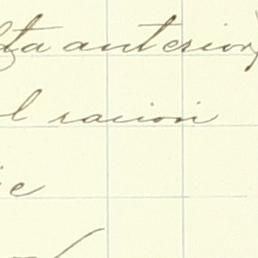 lta anterior)
l racion
ie